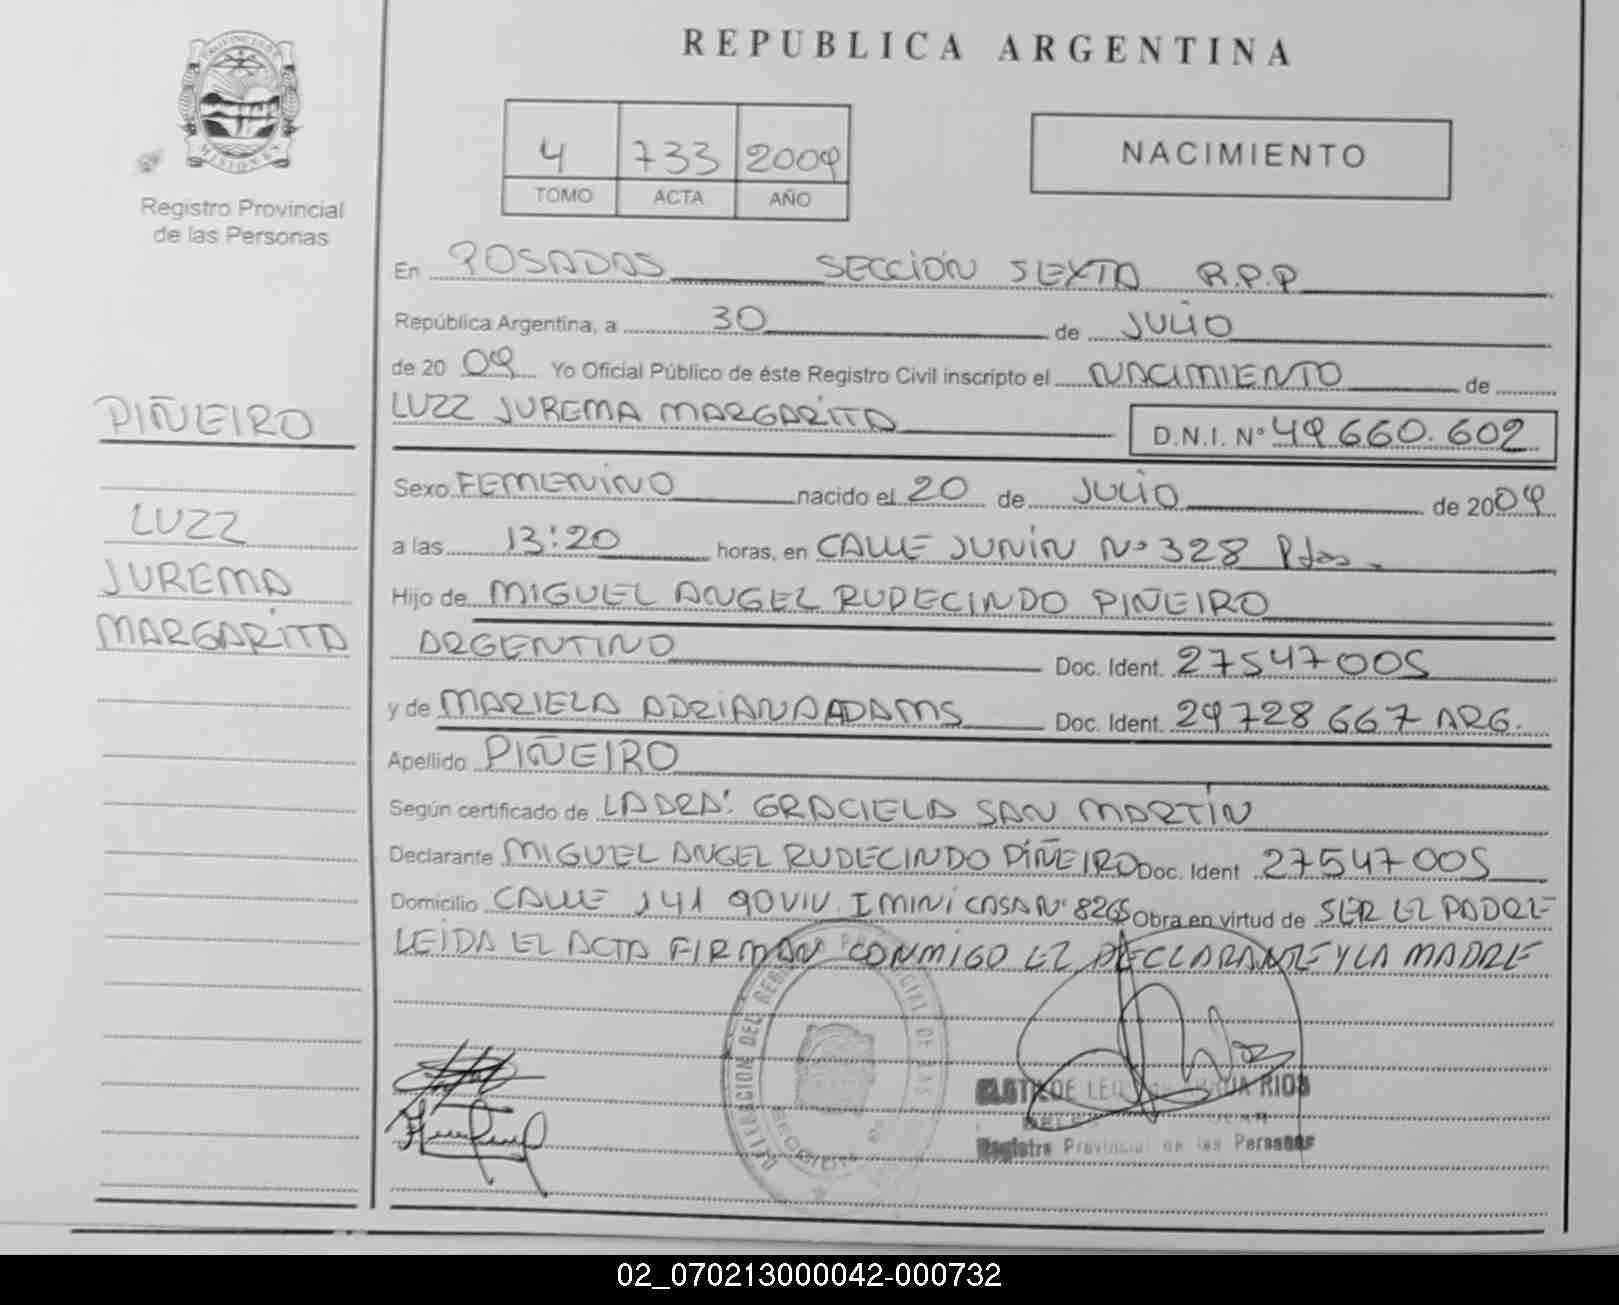 REPUBLICA ARGENTINA
PROVINCIA DE
MISIONES
Registro Provincial
de las Personas
4 733 2009
TOMO ACTA AÑO
NACIMIENTO
En POSADAS SECCIÓN SEXTA R.P.P
República Argentina, a 30 de JULIO
de 20 09 Yo Oficial Público de éste Registro Civil inscripto el NACIMIENTO de
LUZZ JUREMA MARGARITA D.N.I. Nº 49.660.602
PIÑEIRO
LUZZ
JUREMA
MARGARITA
Sexo FEMENINO nacido el 20 de JULIO de 2009
a las 13:20 horas, en CALLE JUNÍN Nº 328 Pdas
Hijo de MIGUEL ANGEL RUDECINDO PIÑEIRO
ARGENTINO Doc. Ident. 27547005
y de MARIELA ADRIANA ADAMS Doc. Ident. 29728667 ARG.
Apellido PIÑEIRO
Según certificado de LA DRA: GRACIELA SAN MARTÍN
Declarante MIGUEL ANGEL RUDECINDO PIÑEIRO Doc. Ident 27547005
Domicilio CALLE 141 90 VIV. I MINI CASA Nº 8265 Obra en virtud de SER EL PADRE
LEIDA EL ACTA FIRMAN CONMIGO EL DECLARANTE Y LA MADRE
DELEGACION DEL REG PROVINCIAL DE LAS
RIOS
Registro Provincial de las Personas
02_070213000042-000732